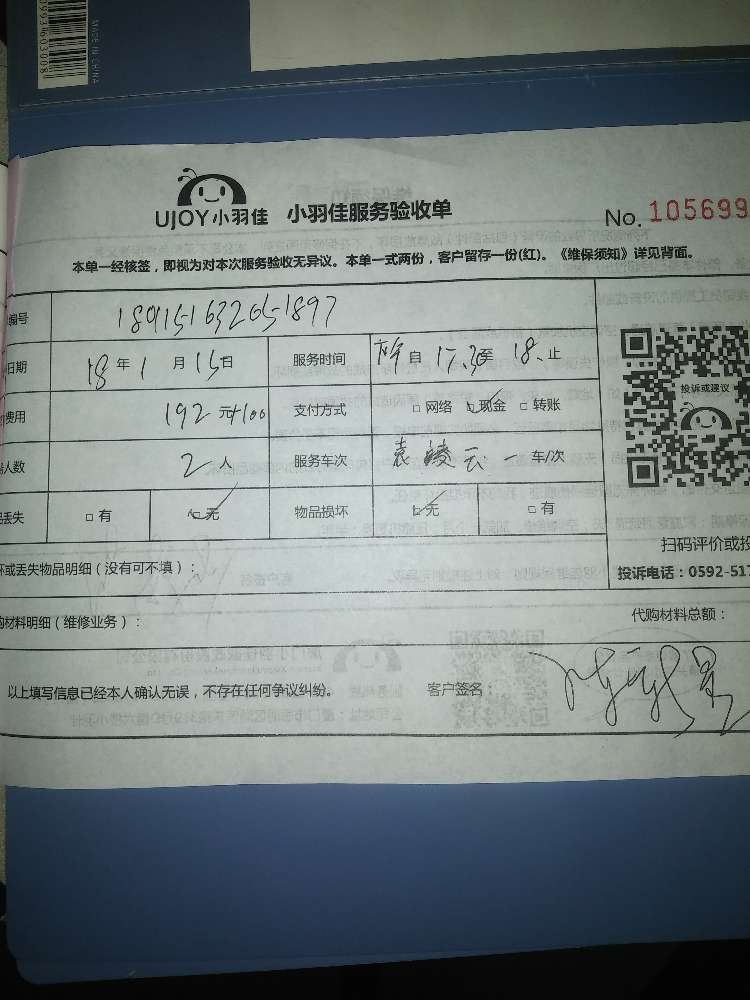 MADE IN CHINA
UJOY小羽佳 小羽佳服务验收单
No. 105699
本单一经核签，即视为对本次服务验收无异议。本单一式两份，客户留存一份(红)。《维保须知》详见背面。
编号
日期 18 年 1 月 15 日 服务时间 自 17.30 至 18. 止
费用 192 元+100 支付方式 □ 网络 □ 现金 □ 转账
投诉或建议
人数 2 人 服务车次 一 车/次
丢失 □ 有 □ 无 物品损坏 □ 无 □ 有
扫码评价或投
坏或丢失物品明细（没有可不填）：
投诉电话：0592-517
购材料明细（维修业务）： 代购材料总额：
以上填写信息已经本人确认无误，不存在任何争议纠纷。 客户签名：